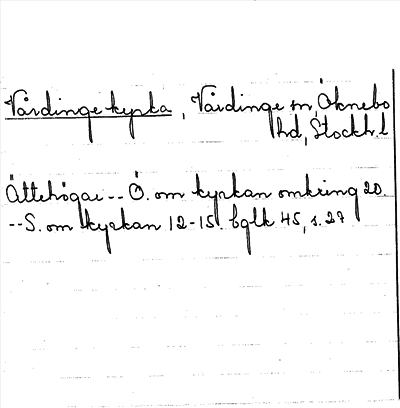 Vårdinge kyrka, Vårdinge sn, Öknebo
hd, Stockh. l
Ättehögar -- Ö. om kyrkan omkring 20
-- S. om kyrkan 12-15. bglk 45, s. 27